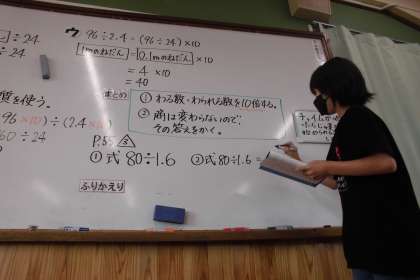 ÷24
÷24
質を使う。
96×10)÷(2.4×10
60÷24
ウ 96÷2.4=(96÷24)×10
1mのねだん 0.1mのねだん×10
=4×10
=40
まとめ
①わる数・わられる数を10倍する。
②商は変わらないので、
その答えをかく。
①式 80÷1.6
②式 80÷1.6=
ふりかえり